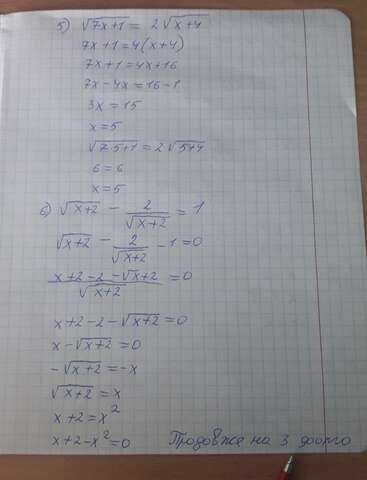 5) √(7x+1) = 2√(x+4)
7x+1=4(x+4)
7x+1=4x+16
7x-4x=16-1
3x=15
x=5
√(7·5+1)=2√(5+4)
6=6
x=5
6) √(x+2) - 2/√(x+2) = 1
√(x+2) - 2/√(x+2) - 1=0
(x+2-2-√(x+2))/√(x+2) =0
x+2-2-√(x+2)=0
x-√(x+2)=0
-√(x+2)=-x
√(x+2)=x
x+2=x²
x+2-x²=0 Продовже на 3 фото